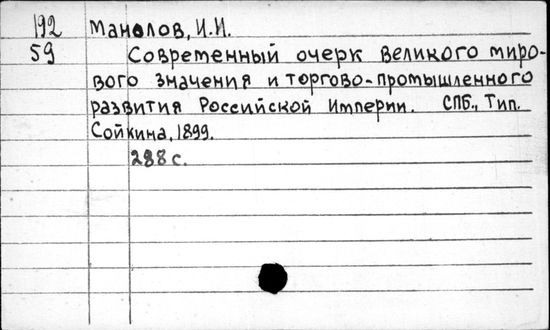 192 Манолов, И.И.
59 Современный очерк великого миро-
вого значения и торгово-промышленного
развития Российской Империи. СПБ., Тип.
Сойкина, 1899.
288 с.